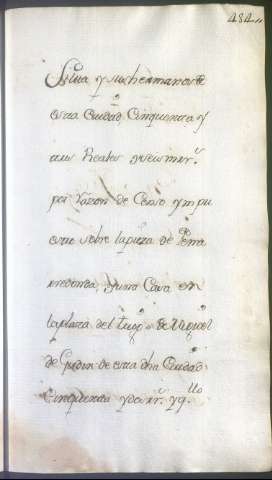 484
Silua y sus hermanos de
esta Ciudad, Cinquenta y
seis Reales y seis mrs.
por razon de Censo, ympu
esto sobre la pieza de Peña
rredonda, y una Casa en
la plaza del lugo de Miguel
de Guidin de esta dha Ciudad
Cinquenta y dos rr. y q.llo